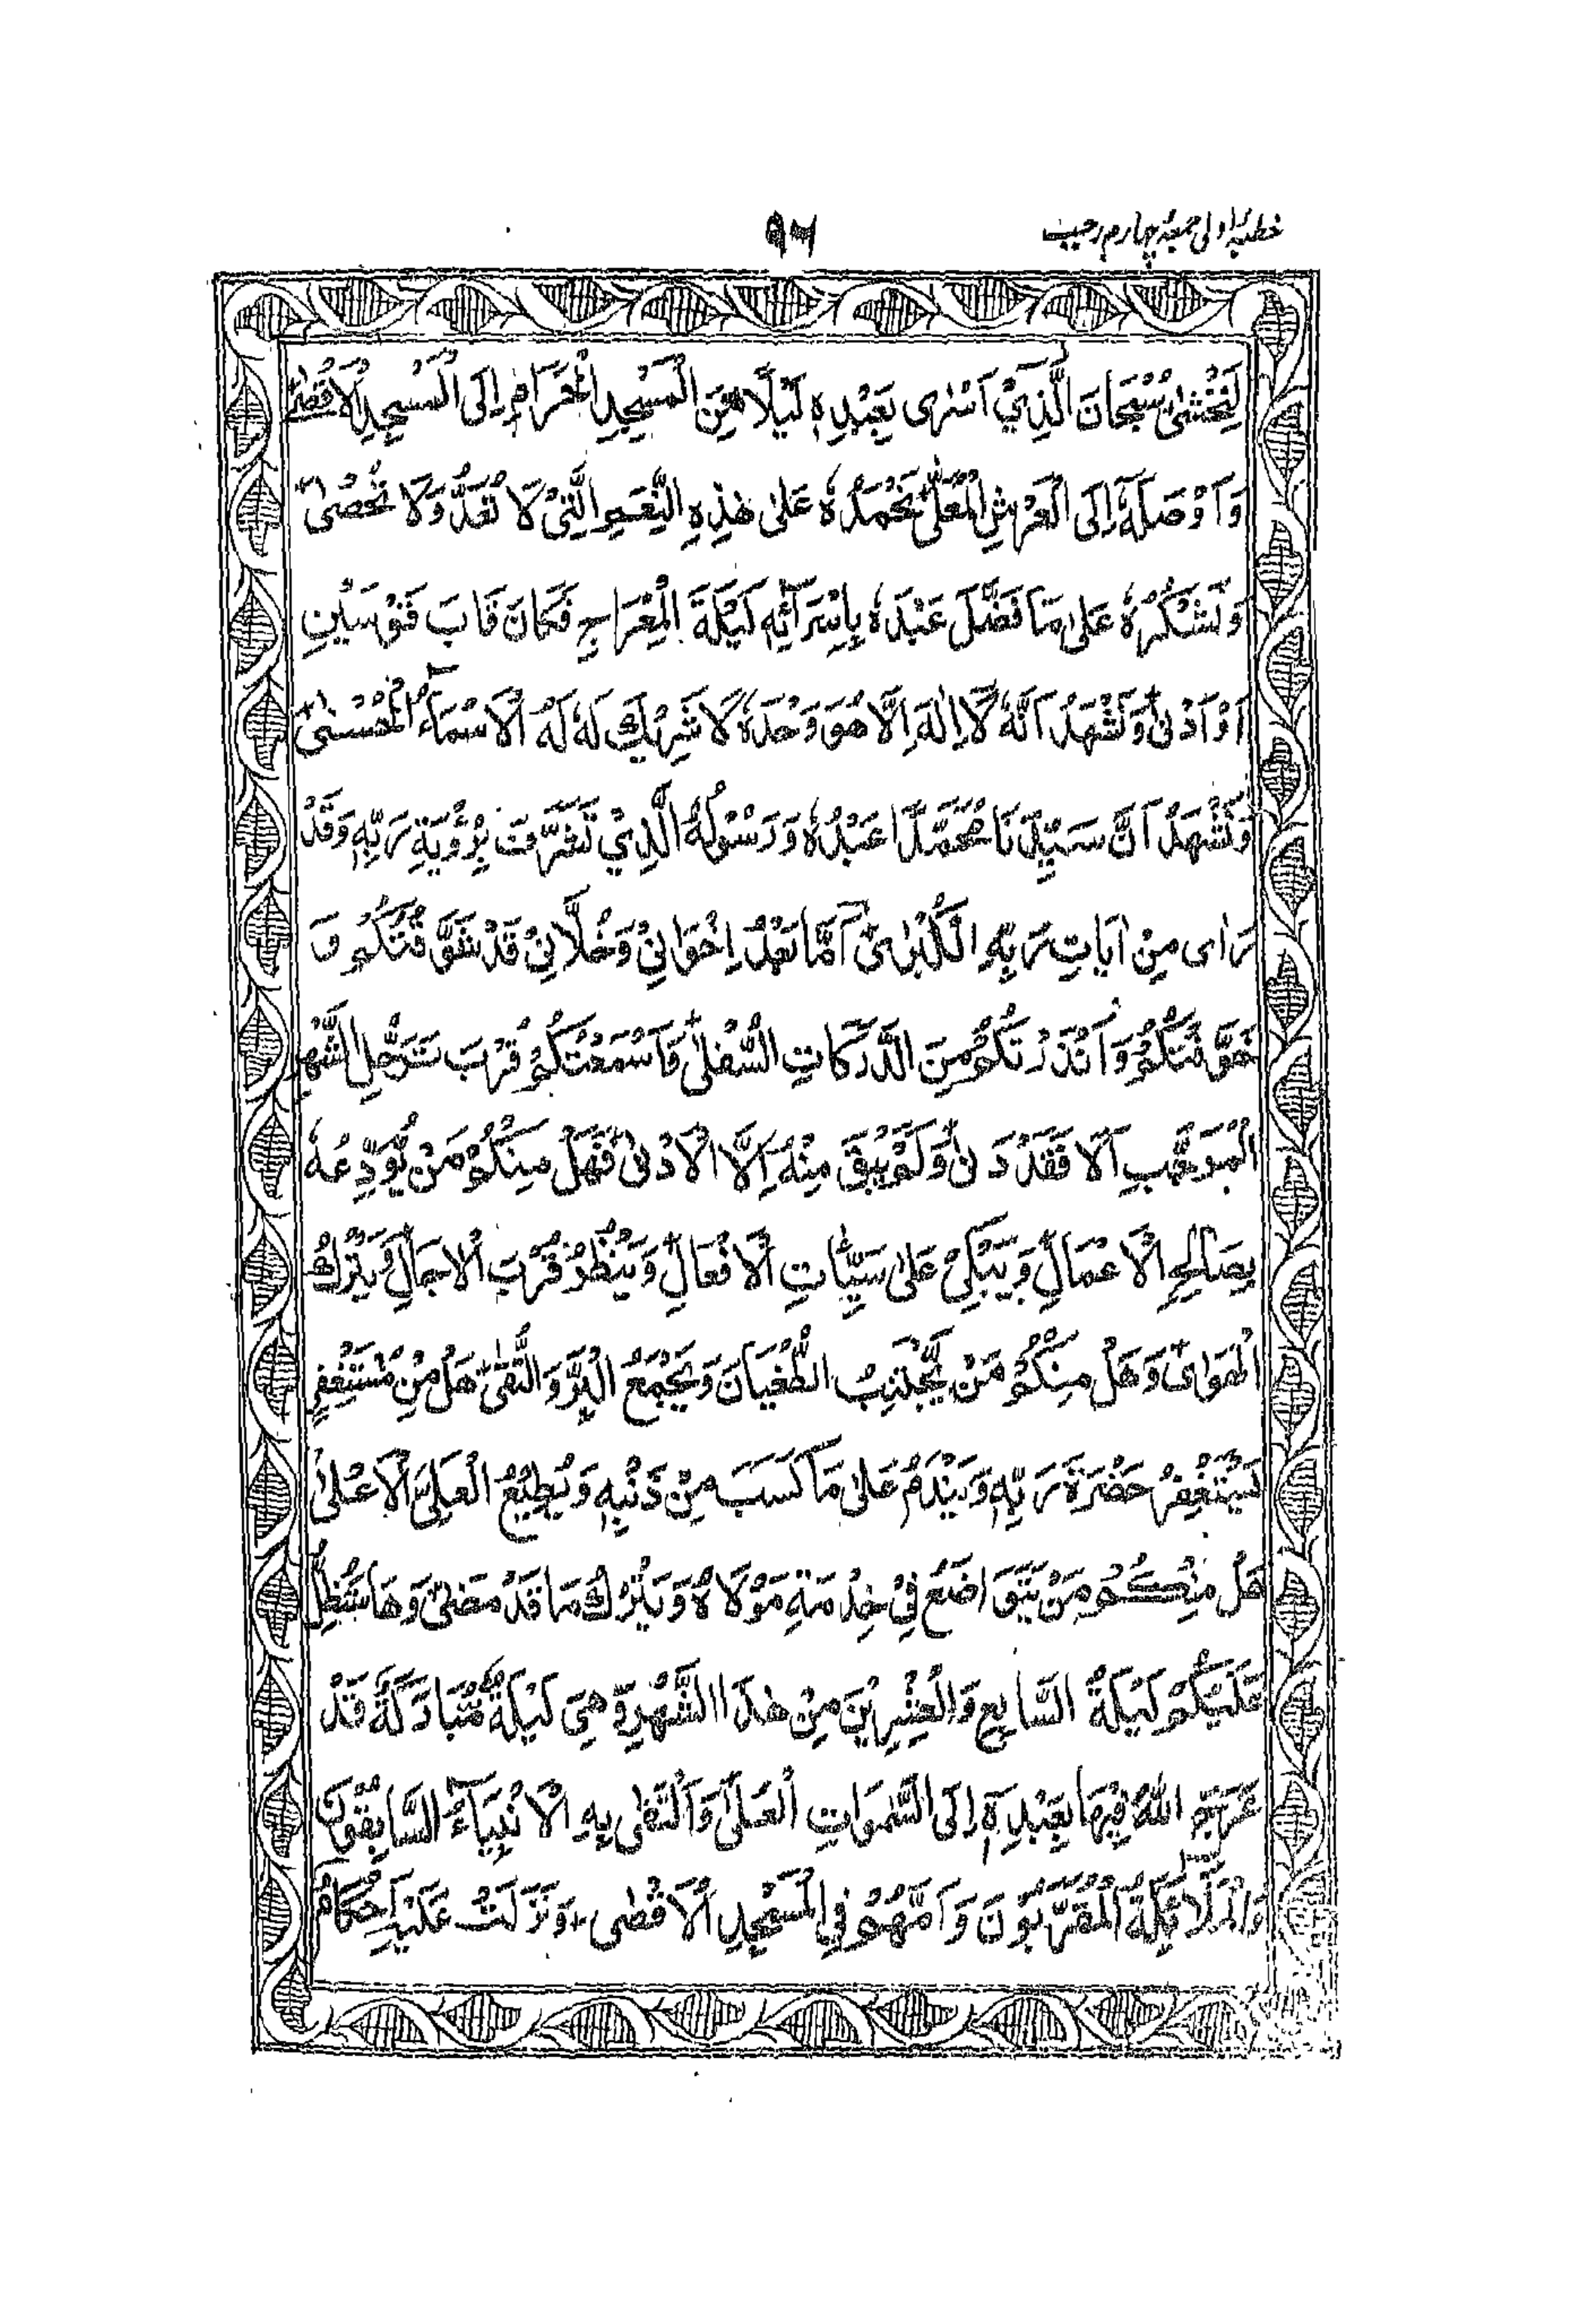 خطبۂ اولی جمعۂ چہارم رجب
۹۶
لَنَخْشٰى سُبْحَانَ الَّذِيْ اَسْرٰى بِعَبْدِهٖ لَيْلًا مِّنَ الْمَسْجِدِ الْحَرَامِ اِلَى الْمَسْجِدِ الْاَقْصٰى
وَاَوْصَلَهٗ اِلَى الْعَرْشِ الْمُعَلّٰى نَحْمَدُهٗ عَلٰى هٰذِهِ النِّعَمِ الَّتِيْ لَا تُعَدُّ وَلَا تُحْصٰى
وَنَشْكُرُهٗ عَلٰى مَا فَضَّلَ عَبْدَهٗ بِاِسْرَآئِهٖ لَيْلَةَ الْمِعْرَاجِ فَكَانَ قَابَ قَوْسَيْنِ
اَوْ اَدْنٰى وَنَشْهَدُ اَنَّهٗ لَا اِلٰهَ اِلَّا هُوَ وَحْدَهٗ لَا شَرِيْكَ لَهٗ لَهُ الْاَسْمَآءُ الْحُسْنٰى
وَنَشْهَدُ اَنَّ سَيِّدَنَا مُحَمَّدًا عَبْدُهٗ وَرَسُوْلُهُ الَّذِيْ تَشَرَّفَ بِرُؤْيَةِ رَبِّهٖ وَقَدْ
رَاٰى مِنْ اٰيَاتِ رَبِّهِ الْكُبْرٰى اَمَّا بَعْدُ اِخْوَانِيْ وَخُلَّانِيْ قَدْ شَوَّقْتُكُمْ وَ
خَوَّفْتُكُمْ وَاَنْذَرْتُكُمْ مِنَ الدَّرَكَاتِ السُّفْلٰى وَاَسْمَعْتُكُمْ قُرْبَ تَرَحُّلِ الشَّهْرِ
الْمُرَجَّبِ اَلَا فَقَدْ دَنٰى وَلَمْ يَبْقَ مِنْهُ اِلَّا الْاَدْنٰى فَهَلْ مِنْكُمْ مَنْ يُّوَدِّعُهٗ
بِصَالِحِ الْاَعْمَالِ وَيَبْكِيْ عَلٰى سَيِّئَاتِ الْاَفْعَالِ وَيَنْظُرُ قُرْبَ الْاٰجَالِ وَيَتْرُكُ
الْهَوٰى وَهَلْ مِنْكُمْ مَنْ يَّجْتَنِبُ الطُّغْيَانَ وَيَجْمَعُ الْبِرَّ وَالتُّقٰى هَلْ مِنْ مُّسْتَغْفِرٍ
يَسْتَغْفِرُ حَضْرَةَ رَبِّهٖ وَيَنْدَمُ عَلٰى مَا كَسَبَ مِنْ ذَنْبِهٖ وَيُطِيْعُ الْعَلِيَّ الْاَعْلٰى
هَلْ مِنْكُمْ مَنْ يَتَوَاضَعُ فِيْ خِدْمَةِ مَوْلَاهُ وَيَتْرُكُ مَا قَدْ مَضٰى وَهَا سَتُظِلُّ
عَلَيْكُمْ لَيْلَةُ السَّابِعِ وَالْعِشْرِيْنَ مِنْ هٰذَا الشَّهْرِ وَهِيَ لَيْلَةٌ مُّبَارَكَةٌ قَدْ
عَرَجَ اللّٰهُ فِيْهَا بِعَبْدِهٖ اِلَى السَّمٰوَاتِ الْعُلٰى وَالْتَقٰى بِهِ الْاَنْبِيَآءُ السَّابِقُوْنَ
وَالْمَلَائِكَةُ الْمُقَرَّبُوْنَ وَاَمَّهُمْ فِي الْمَسْجِدِ الْاَقْصٰى وَنَزَلَتْ عَلَيْهِ اَحْكَامُ